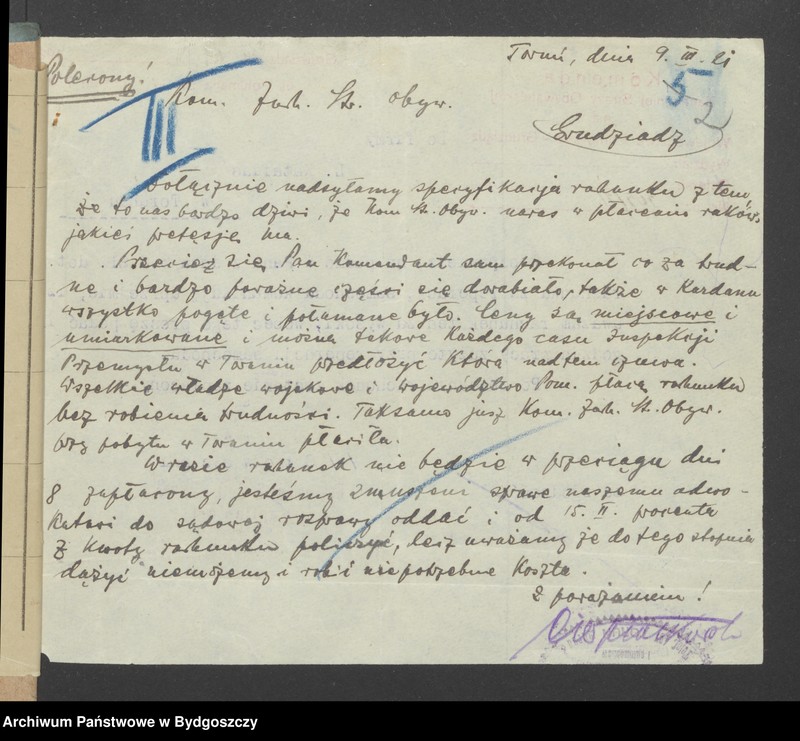 Polecony!
Toruń, dnia 9. III. 21
5
2
III
Kom. Zach. Str. Obyw.
Grudziądz
Dołącznie nadsyłamy specyfikacja rahunku z tem
że to nas bardzo dziwi, że Kom St. Obyw. naras w płaceniu
jakieś pretęsje ma.
Przecież się Pan Komendant sam przekonał co za trud-
ne i bardzo poważne części się dorabiało, także w Kardanu
wszystko pogęte i połamane było. Ceny są miejscowe i
umiarkowane i można takowe każdego casu Inspekcji
Przemysłu w Toruniu przedłożyć która nadtem czuwa.
Wszelkie władze wojskowe i województwo Pom. płacą rahunku
bez robienia trudności. Taksamo jusz Kom. Zah. St. Obyw.
przy pobytu w Toruniu płaciła.
W razie rahunek nie będzie w przeciągu dni
8 zapłacony, jesteśmy zmuszeni sprawe naszemu adwo-
katowi do sądowej rosprawy oddać i od 15. II. procenta
z kwoty rahunku policzyć, lecz uważamy że do tego stopnia
dążyć niemożemy i robić niepotrzebne koszta.
Z poważaniem!
Archiwum Państwowe w Bydgoszczy